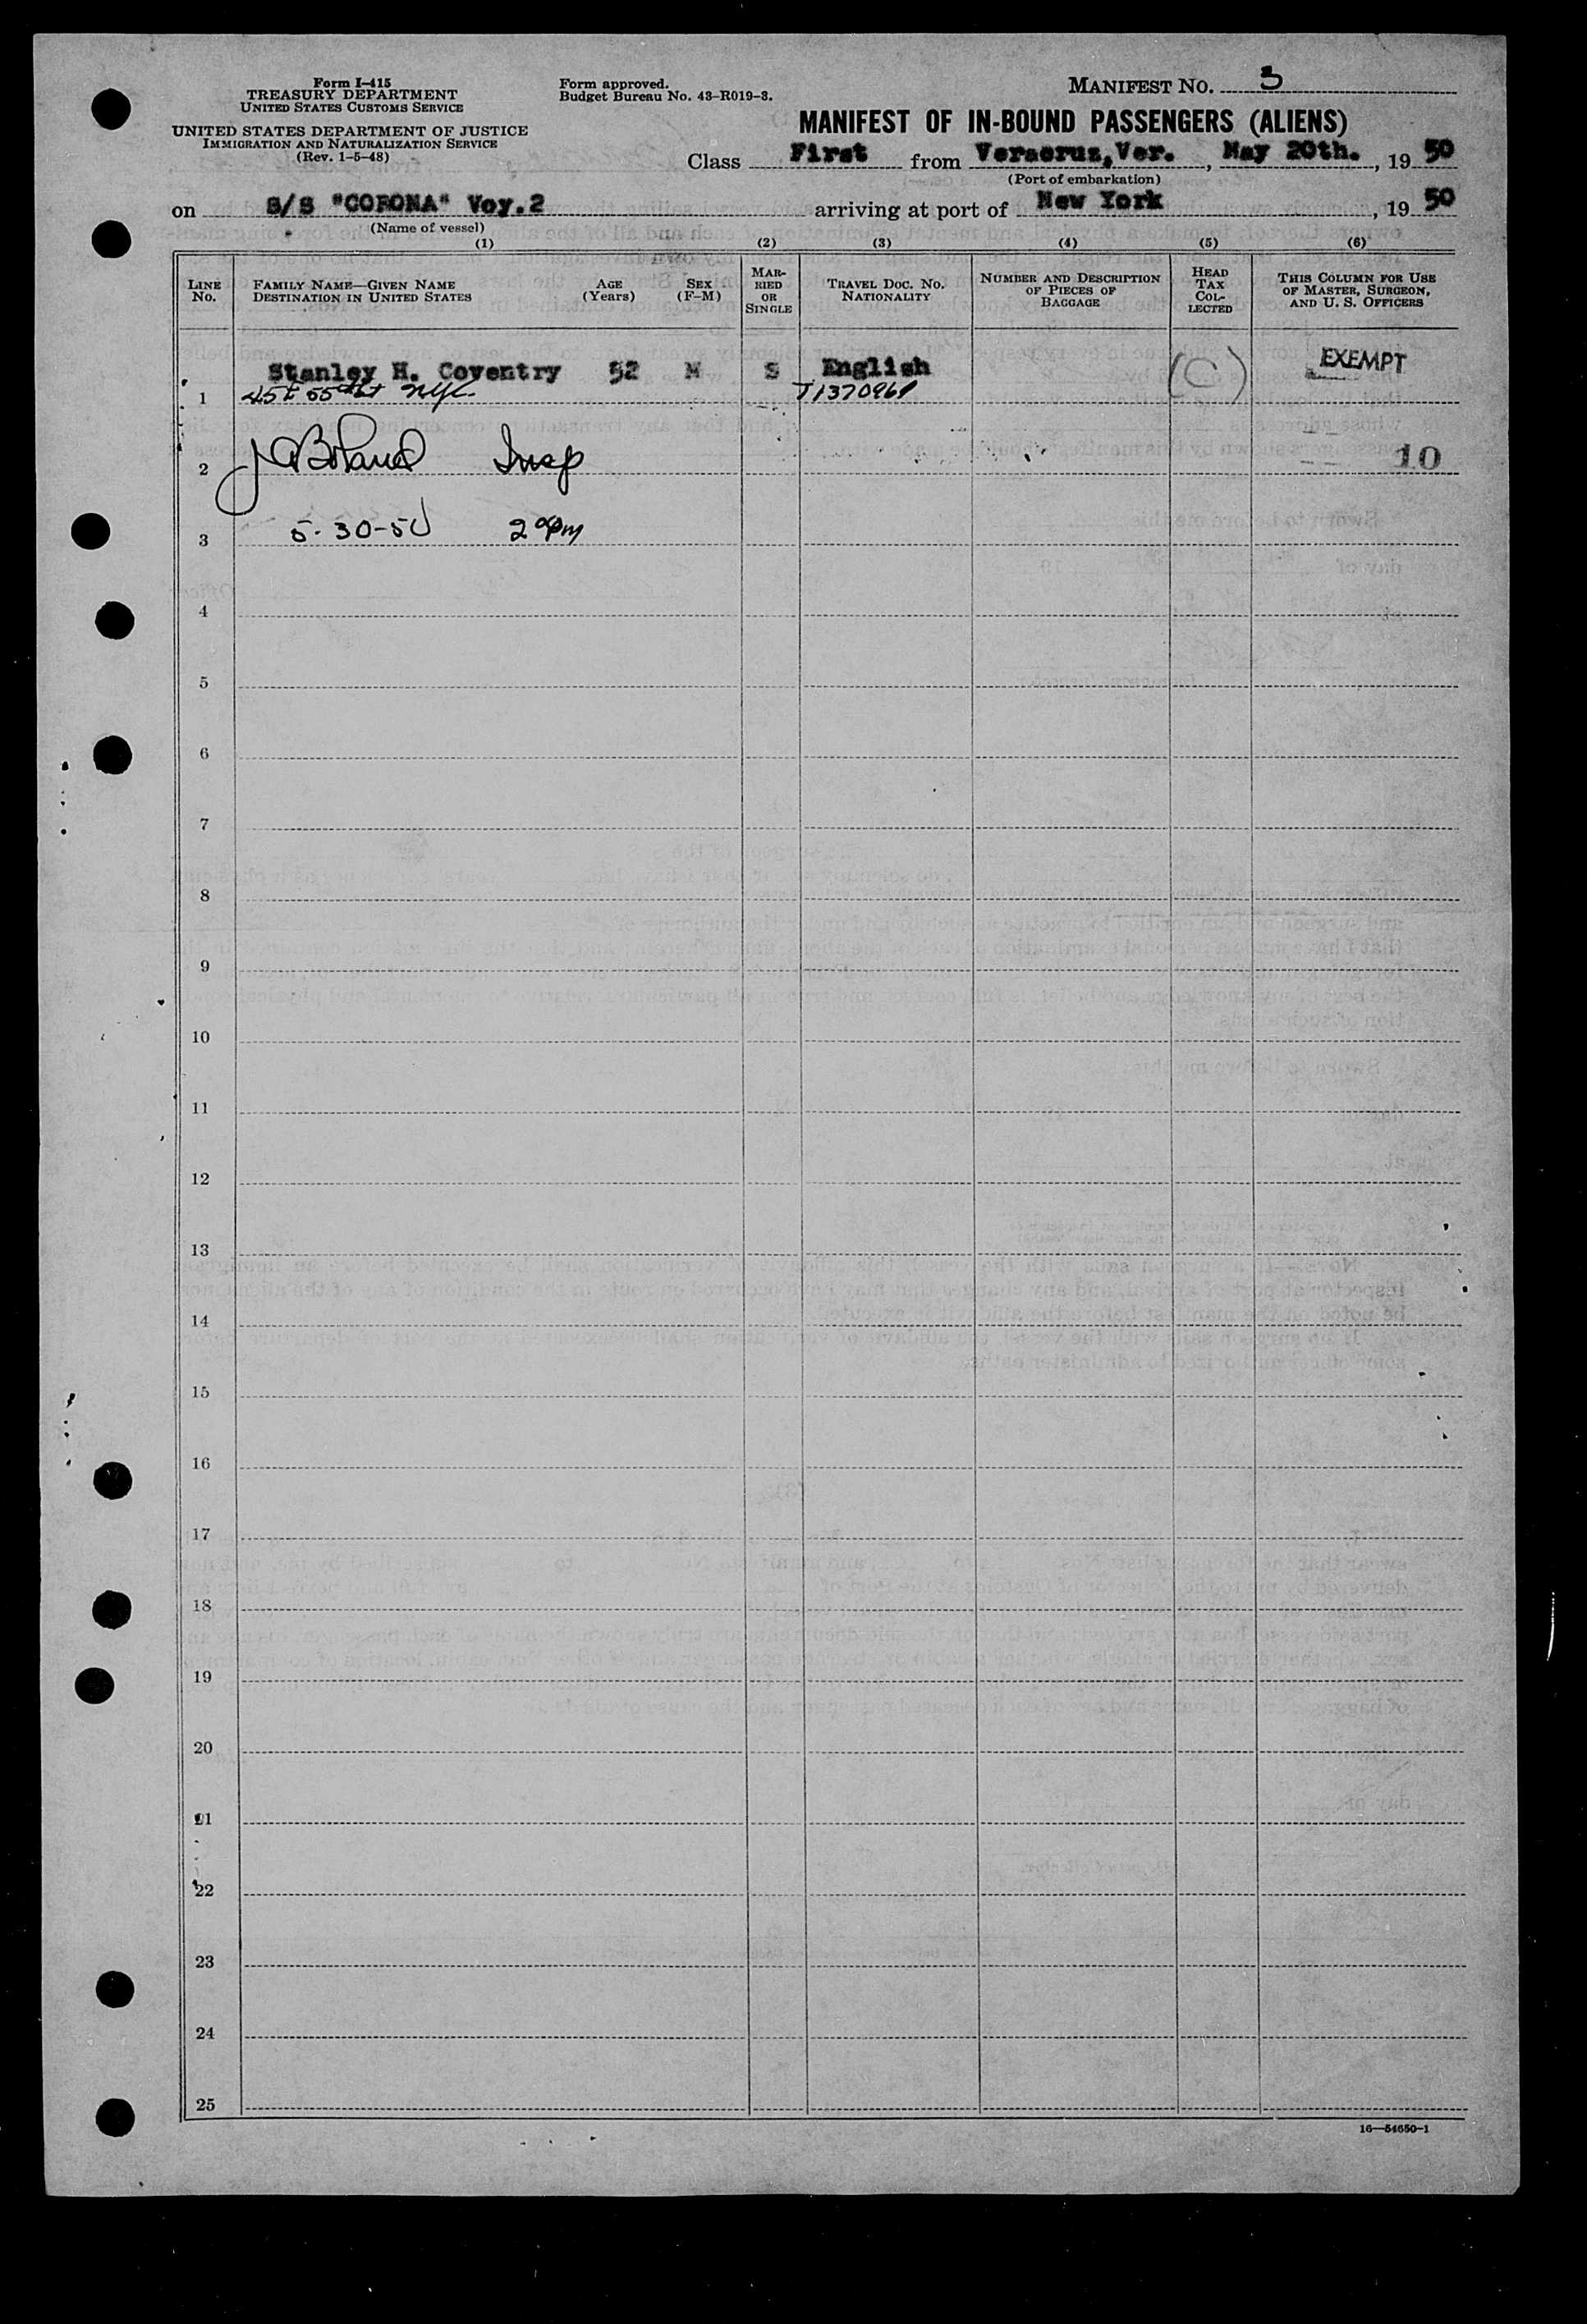 Form I-415
TREASURY DEPARTMENT
UNITED STATES CUSTOMS SERVICE
UNITED STATES DEPARTMENT OF JUSTICE
IMMIGRATION AND NATURALIZATION SERVICE
(Rev. 1-5-48)
Form approved.
Budget Bureau No. 43-R019-3.
MANIFEST NO. 3
MANIFEST OF IN-BOUND PASSENGERS (ALIENS)
Class First from Veracruz,Ver. , May 20th. , 19 50
(Port of embarkation)
on S/S "CORONA" Voy.2 arriving at port of New York , 19 50
(Name of vessel)
(1) (2) (3) (4) (5) (6)
LINE No.
FAMILY NAME—GIVEN NAME
DESTINATION IN UNITED STATES
AGE
(Years)
SEX
(F-M)
MAR-
RIED
OR
SINGLE
TRAVEL DOC. NO.
NATIONALITY
NUMBER AND DESCRIPTION
OF PIECES OF
BAGGAGE
HEAD
TAX
COL-
LECTED
THIS COLUMN FOR USE
OF MASTER, SURGEON,
AND U. S. OFFICERS
Stanley H. Coventry 52 M S English (C) EXEMPT
1 55th st nyc.
2 Insp 10
3 5-30-50 2 00pm
4
5
6
7
8
9
10
11
12
13
14
15
16
17
18
19
20
21
22
23
24
25
16—54650-1